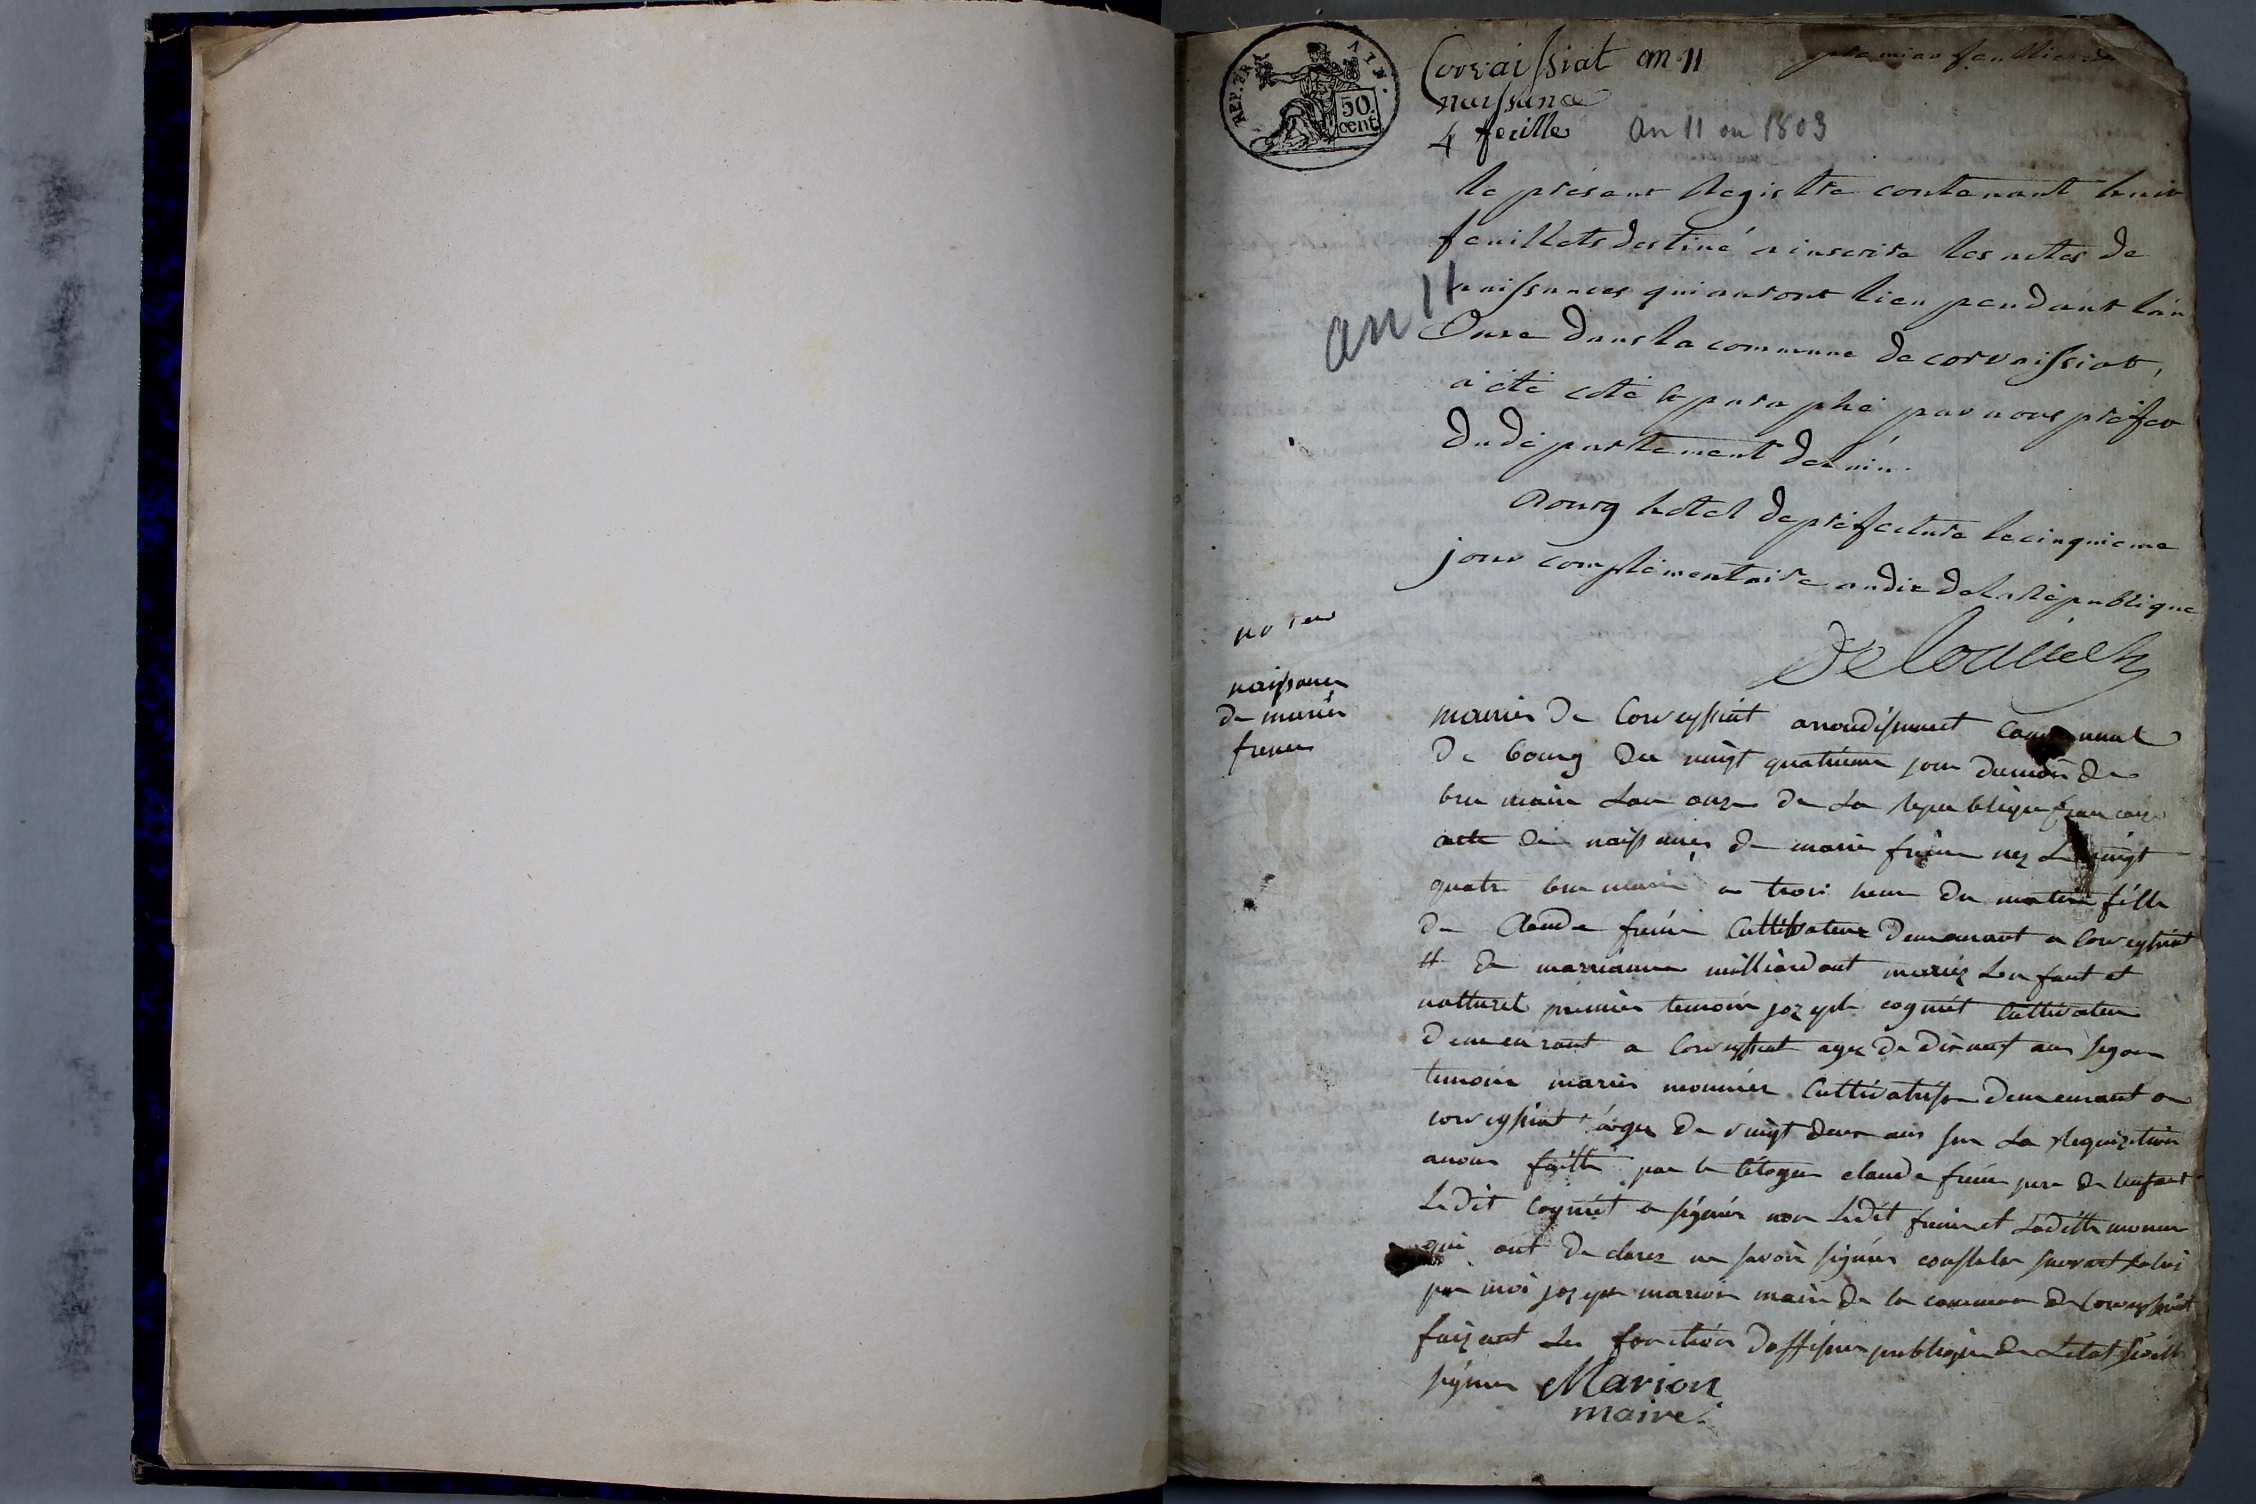 REP. FRA
50
cent
Corvaissiat an 11
premier feuillet
naissance
4 feuilles
an 11 ou 1803
le présent Registre contenant huit
feuillets destiné a inscrire les actes de
naissances qui auront lieu pendant l'an
Onze dans la commune de corvaissiat,
a été coté & paraphé par nous préfet
du département de l'ain.
an 11
a Bourg hotel de préfecture le cinquieme
jour complémentaire an dix de la République
no 1er
naissance
de mariés
frener
mairie de Corveyssiat arrondissement Communal
de bourg du vingt quatrieme jour du mois de
bru maire lan onze de La republique francaise
acte de naissance de marie nez Le vingt
quatre bru maire a trois heure du matin fille
de Claude Cultivateur demeurant a Corveyssiat
et de marianne mariéz Lenfant et
natturel premier temoin jozeph cognét Cultivateur
demeurant a Corveyssiat agez de dixneuf ans segon
temoin mariés Cultivatrisse demeurant a
corveyssiat âgee de vingt deux ans sur La Requizition
anous faitte par le Citoyen claude pere de Lenfant
Ledit Cognét a signér non Ledit et Laditte
qui ont de clarez ne savoir signér constater suivant La loi
par moi jozeph marion maire de la commune de Corveyssiat
faizant Les fonction dofficier publique de Letat Civille
signer Marion
maire